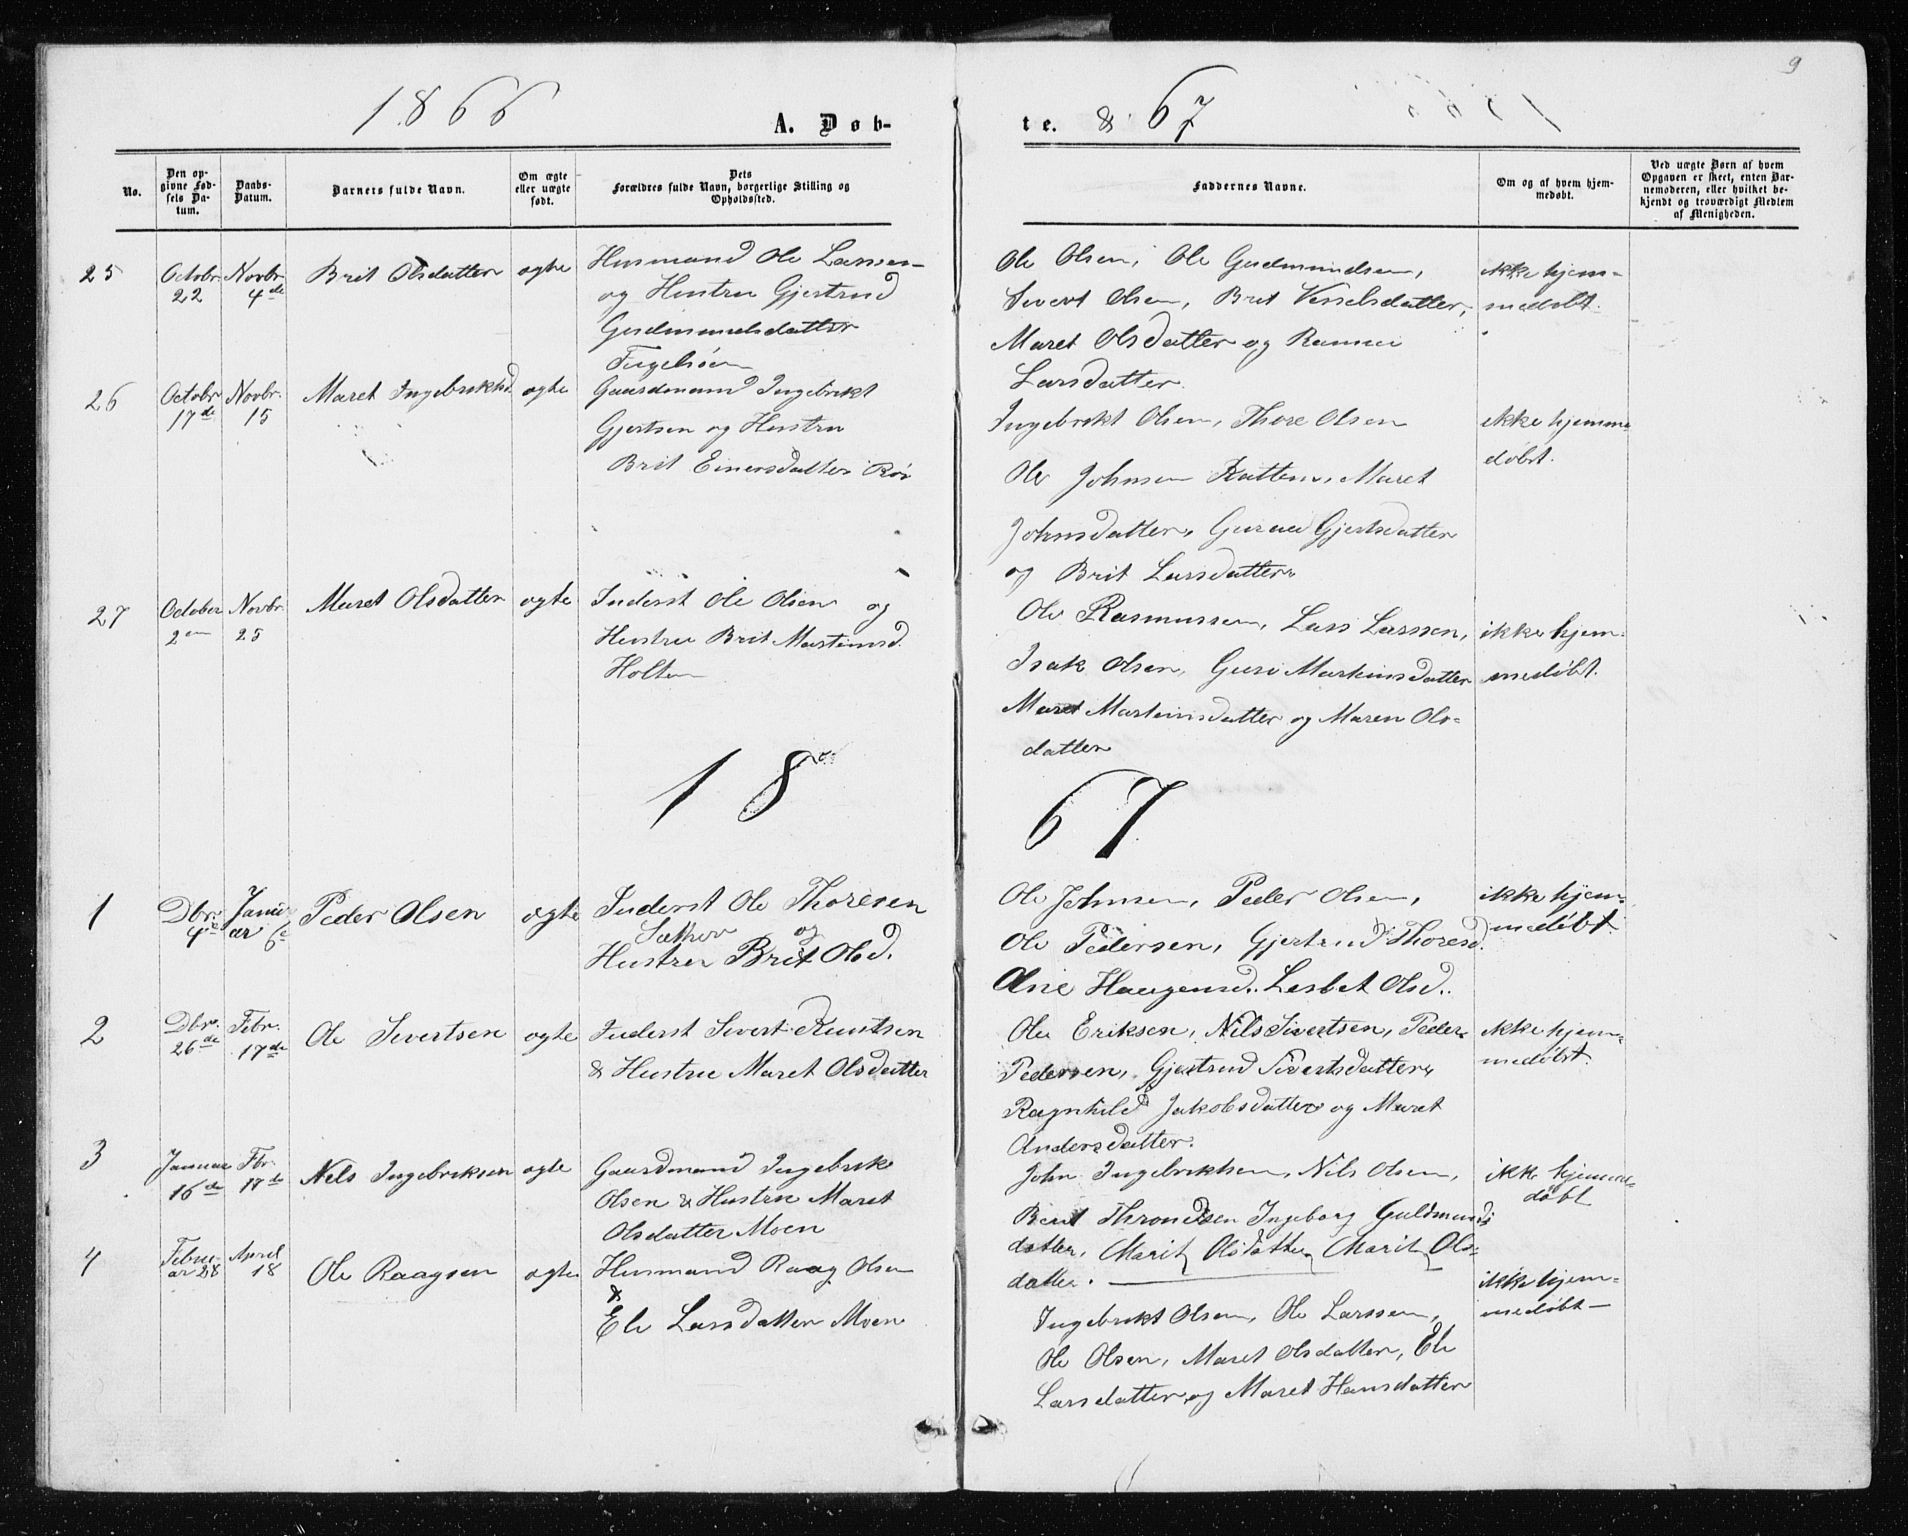 9
1866
A. Døb-
te. & 67
No.
Den op-
givne Fød-
sels Da-
tum.
Daabs-
Datum.
Barnets fulde Navn.
Om ægte
eller uægte
født.
Dets
Forældres fulde Navn, borgerlige Stilling og
Opholdssted.
Faddernes Navne.
Om og af hvem hjem-
medøbt.
Ved uægte Børn af hvem
Opgaven er skeet, enten Bar-
nemoderen, eller hvilket be-
kjendt og troværdigt Medlem
af Menigheden.
25
Octobr
22
Novbr.
4de
Brit Olsdatter
ægte
Husmand Ole Larsen
og Hustru Gjertrud
Gudmundsdatter
Ole Olsen, Ole Gudmundsen,
Sivert Olsen, Brit Vesselsdatter,
Maret Olsdatter og
Larsdatter.
ikke hjem-
medøbt.
26
Octobr
17de
Novbr.
15
Maret Ingebriktsd
ægte
Gaardmand Ingebrikt
Gjertsen og Hustru
Brit Einersdatter Røv
Ingebrikt Olsen, Thore Olsen
Ole Johnsen Katten, Maret
Johnsdatter, Guruu Gjertsdatter
og Brit Larsdatter
ikke hjemme-
døbt.
27
October
2en
Novbr.
25
Maret Olsdatter
ægte
Inderst Ole Olsen og
Hustru Brit Martinusd.
Holten
Ole Rasmussen, Lars Larssen,
Isak Olsen, Guru Martinusdatter
Maret Martinusdatter og Maren Ols-
datter
ikke hjem-
medøbt.
18
67
1
Dbr.
4de
Janu-
ar 6e
Peder Olsen
ægte
Inderst Ole Thoresen
Sæther og
Hustru Brit Olsd.
Ole Johnsen, Peder Olsen,
Ole Pedersen, Gjertrud Thoresd.
Ane Haagensd. Lesbet Olsd.
ikke hjem-
medøbt.
2
Dbr.
26de
Febr.
17de
Ole Sivertsen
ægte
Inderst Sivert Knutsen
& Hustru Maret Olsdatter
Ole Eriksen, Nils Sivertsen, Peder
Pedersen, Gjertrud Sivertsdatter,
Ragnhild Jakobsdatter og Maret
Andersdatter.
ikke hjem-
medøbt.
3
Januar
16de
Fbr.
17de
Nels Ingebriksen
ægte
Gaardmand Ingebrik
Olsen & Hustru Maret
Olsdatter Moen
John Ingebrikhsen, Nils Olsen,
Berit Throndsen Ingeborg Guldmunds
datter, Marit Olsdatter Marit Ols-
datter.
ikke hjemme-
døbt
4
Febru-
ar 28
April
18
Ole Raagsen
ægte
Husmand Raag Olsen
&
Eli Larsdatter Moen
Ingebrikt Olsen, Ole Larssen,
Ole Olsen, Maret Olsdatter, Eli
Larsdatter og Maret Hansdatter
ikke hjem-
medøbt